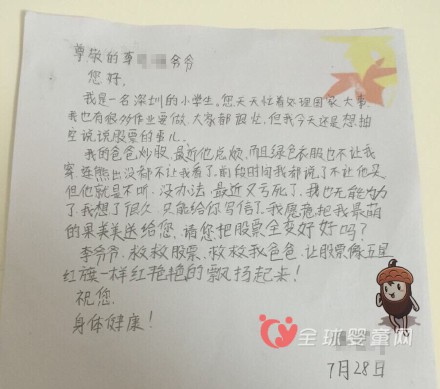 尊敬的李爷爷
您好,
我是一名深圳的小学生。您天天忙着处理国家大事,
我也有很多作业要做,大家都很忙,但我今天还是想抽
空说说股票的事儿。
我的爸爸炒股,最近他总烦,而且绿色衣服也不让我
穿,连熊出没都不让我看了,前段时间我都说了不让他买
但他就是不听,没办法,最近又亏死了,我也无能为力
了,我想了很久,只能给你写信了,我愿意把我最萌
的果美美送给您,请您把股票全变好好吗?
李爷爷,救救股票,救救我爸爸,让股票像五星
红旗一样红艳艳的飘扬起来!
祝您,
身体健康!
全球婴童网
7月28日